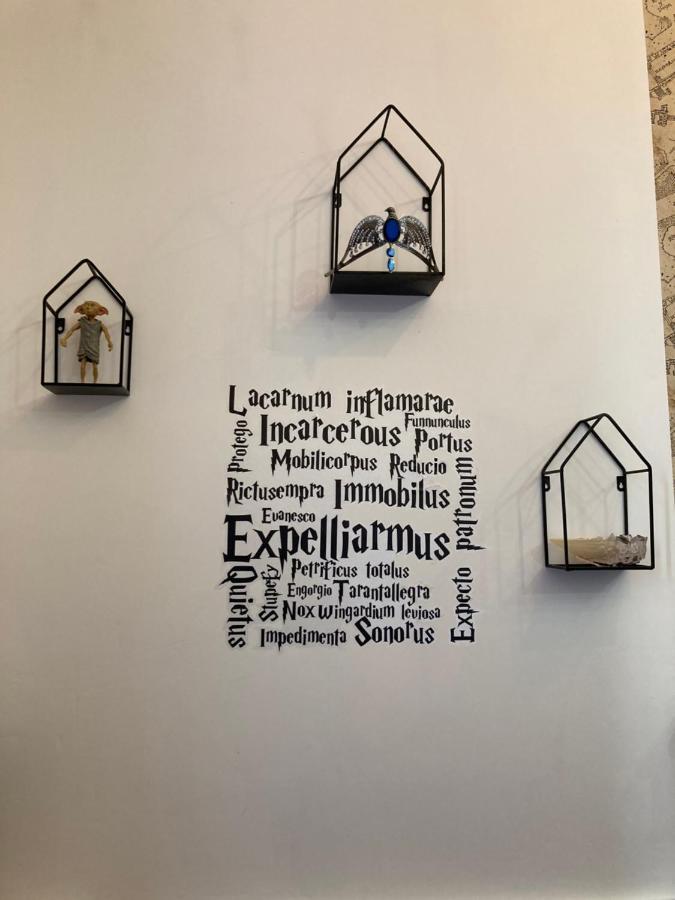 Lacarnum inflamarae
Funnunculus
Protego
Incarcerous
Portus
Mobilicorpus Reducio
Rictusempra Immobilus
Expecto patronum
Evanesco
Expelliarmus
Quietus
Stupefy
Petrificus totalus
Engorgio Tarantallegra
Nox wingardium leviosa
Impedimenta Sonorus